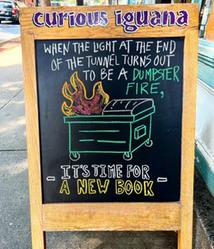 curious iguana
WHEN THE LIGHT AT THE END
OF THE TUNNEL TURNS OUT
TO BE A DUMPSTER
FIRE,
IT'S TIME FOR
- A NEW BOOK -